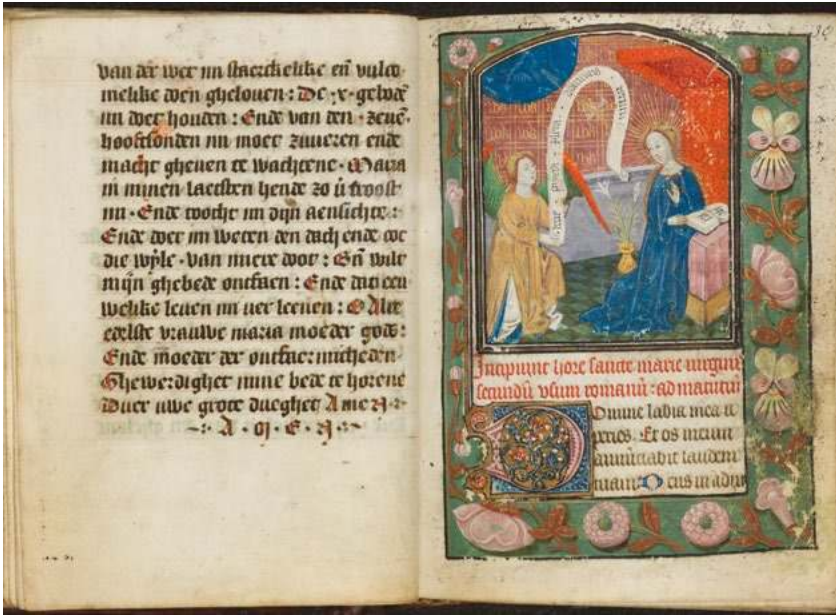 van der wet mi staerckelike en̄ vulco
melike doen ghelouen : De · x · gebode̅
mi doet houden : Ende van den · zeue̅ ·
hooftsonden mi moet zuueren ende
macht gheuen te wachtene · Maria
in minen laetsten hende zo u̅ troost
mi · Ende toocht mi dijn aensichte :
Ende doet mi weten den dach ende
die wijle · van miere doot : En̄ wilt
mijn ghebede ontfaen : Ende dat eeu
welike leuen mi uer leenen : O Alre
edelste vrauwe maria moeder gods :
Ende moeder der ontfaermicheden ·
Ghewerdighet mine bede te horene
Duer uwe grote dueghet Amen ·
· A · M · E · N ·
30
Aue · gracia · plena · dominus ·
Incipiunt hore sancte marie uirginis
secundu̅ vsum romanu̅ : ad matuti̅
Domine labia mea a
peries · Et os meum
annu̅ciabit laudem
tuam · Deus in adiu